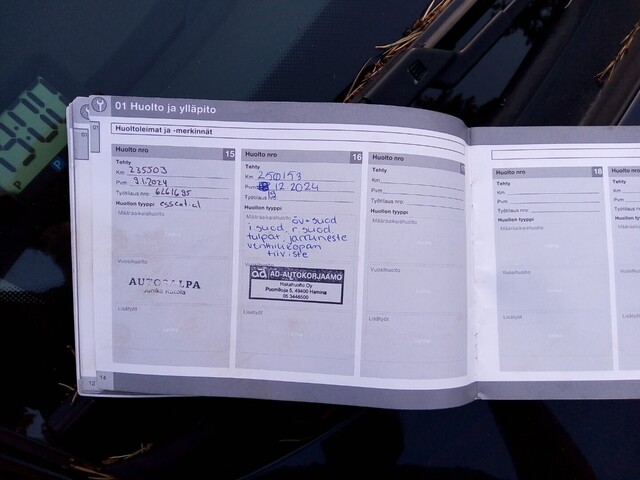 01 Huolto ja ylläpito
Huoltoleimat ja -merkinnät
Huolto nro 15
Tehty
Km 235503
Pvm 9.1.2024
Työtilaus nro 6261695
Huollon tyyppi essential
Määräaikaishuolto
Vuosihuolto
AUTOSALPA
Lisätyöt
Huolto nro 16
Tehty
Km 250153
Pvm 12 2024
Työtilaus nro
Huollon tyyppi
Määräaikaishuolto öv+suod
i.suod, r.suod,
tulpat, jarruneste
venttiilikopan
tiiviste
Vuosihuolto
ad AD-AUTOKORJAAMO
Hakahuolto Oy
Puomitluja 5, 49400 Hamina
05 3448500
Lisätyöt
Huolto nro
Tehty
Km
Pvm
Työtilaus nro
Huollon tyyppi
Määräaikaishuolto
Vuosihuolto
Lisätyöt
Huolto nro 18
Tehty
Km
Pvm
Työtilaus nro
Huollon tyyppi
Määräaikaishuolto
Vuosihuolto
Lisätyöt
Huolto nro
Tehty
Km
Pvm
Työtilaus
Huollon
Lisätyöt
12
14
P